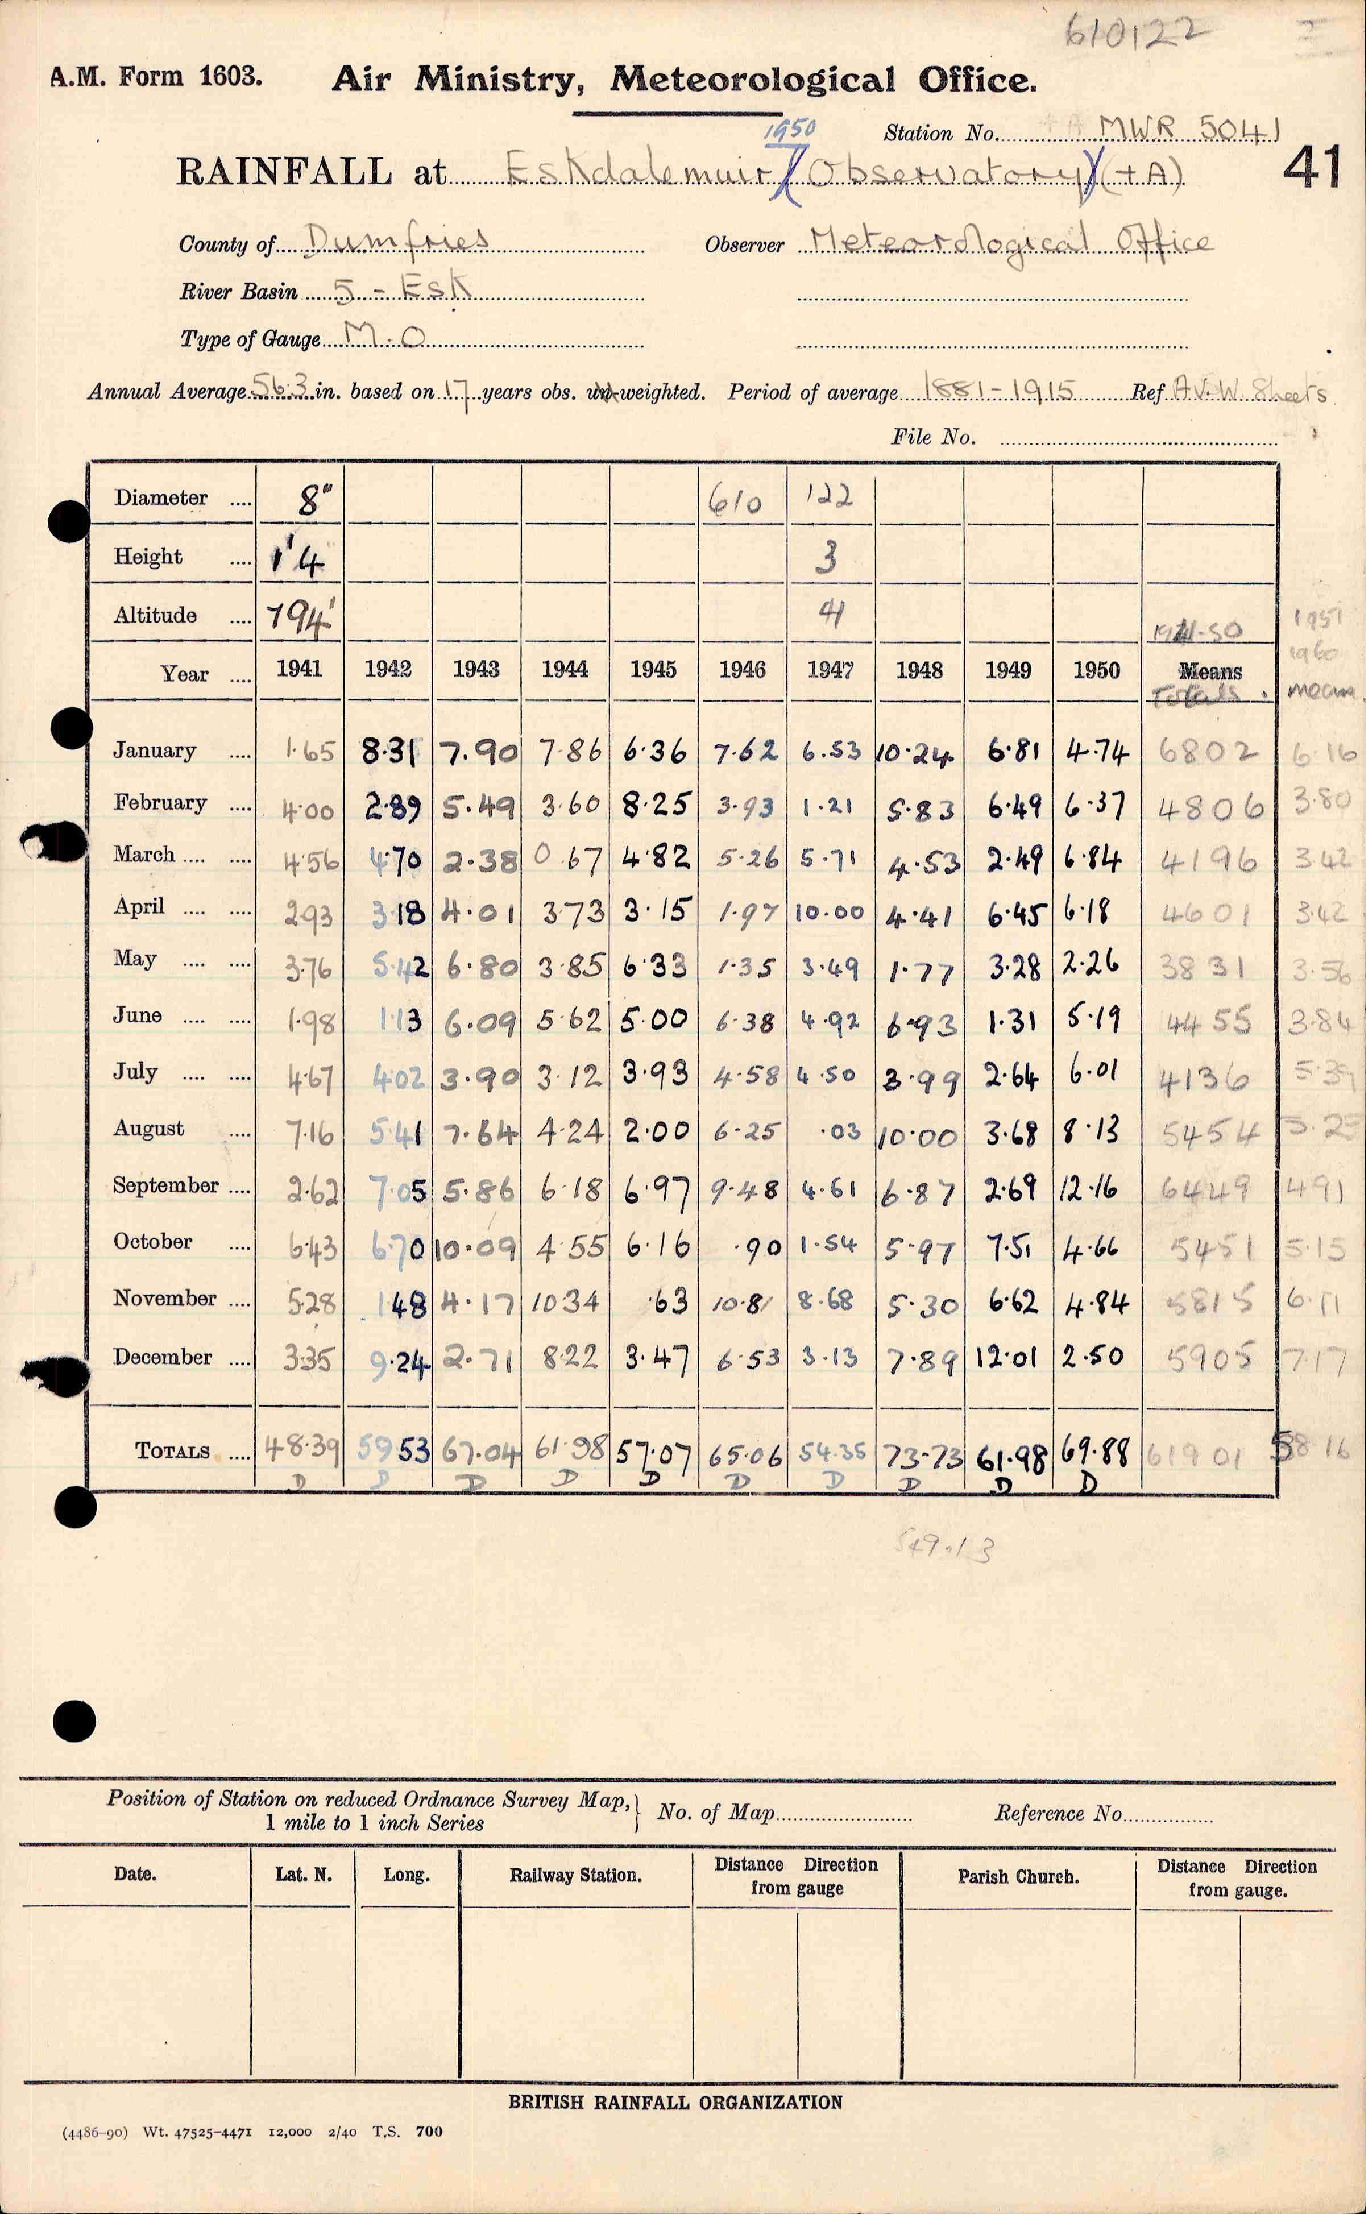 610122
A.M. Form 1603. Air Ministry, Meteorological Office.
Station No. MWR 5041
1950
RAINFALL at Eskdalemuir (Observatory) (+A) 41
County of Dumfries Observer Meteorological Office
River Basin 5 - Esk
Type of Gauge M.O
Annual Average 56.3 in. based on 17 years obs. un-weighted. Period of average 1881-1915 Ref Av. W. Sheets
File No.
Diameter .... 8" 610 122
Height .... 1'4 3
Altitude .... 794' 41
1941-50 1951
1960
Year .... 1941 1942 1943 1944 1945 1946 1947 1948 1949 1950 Means mean
Totals.
January .... 1.65 8.31 7.90 7.86 6.36 7.62 6.53 10.24 6.81 4.74 6802 6.16
February .... 4.00 2.89 5.49 3.60 8.25 3.93 1.21 5.83 6.49 6.37 4806 3.80
March .... .... 4.56 4.70 2.38 0.67 4.82 5.26 5.71 4.53 2.49 6.84 4196 3.42
April .... .... 2.93 3.18 4.01 3.73 3.15 1.97 10.00 4.41 6.45 6.18 4601 3.42
May .... .... 3.76 5.42 6.80 3.85 6.33 1.35 3.49 1.77 3.28 2.26 3831 3.56
June .... .... 1.98 1.13 6.09 5.62 5.00 6.38 4.92 6.93 1.31 5.19 4455 3.84
July .... .... 4.67 4.02 3.90 3.12 3.93 4.58 4.50 3.99 2.64 6.01 4136 5.39
August .... 7.16 5.41 7.64 4.24 2.00 6.25 .03 10.00 3.68 8.13 5454 5.25
September .... 2.62 7.05 5.86 6.18 6.97 9.48 4.61 6.87 2.69 12.16 6449 4.91
October .... 6.43 6.70 10.09 4.55 6.16 .90 1.54 5.97 7.51 4.66 5451 5.15
November .... 5.28 1.48 4.17 10.34 .63 10.81 8.68 5.30 6.62 4.84 5815 6.11
December .... 3.35 9.24 2.71 8.22 3.47 6.53 3.13 7.89 12.01 2.50 5905 7.17
TOTALS .... 48.39 59.53 67.04 61.98 57.07 65.06 54.35 73.73 61.98 69.88 61901 58.16
D D D D D D D D D D
549.13
Position of Station on reduced Ordnance Survey Map, 1 mile to 1 inch Series } No. of Map Reference No.
Date. Lat. N. Long. Railway Station. Distance Direction from gauge Parish Church. Distance Direction from gauge.
BRITISH RAINFALL ORGANIZATION
(4486-90) Wt. 47525-4471 12,000 2/40 T.S. 700